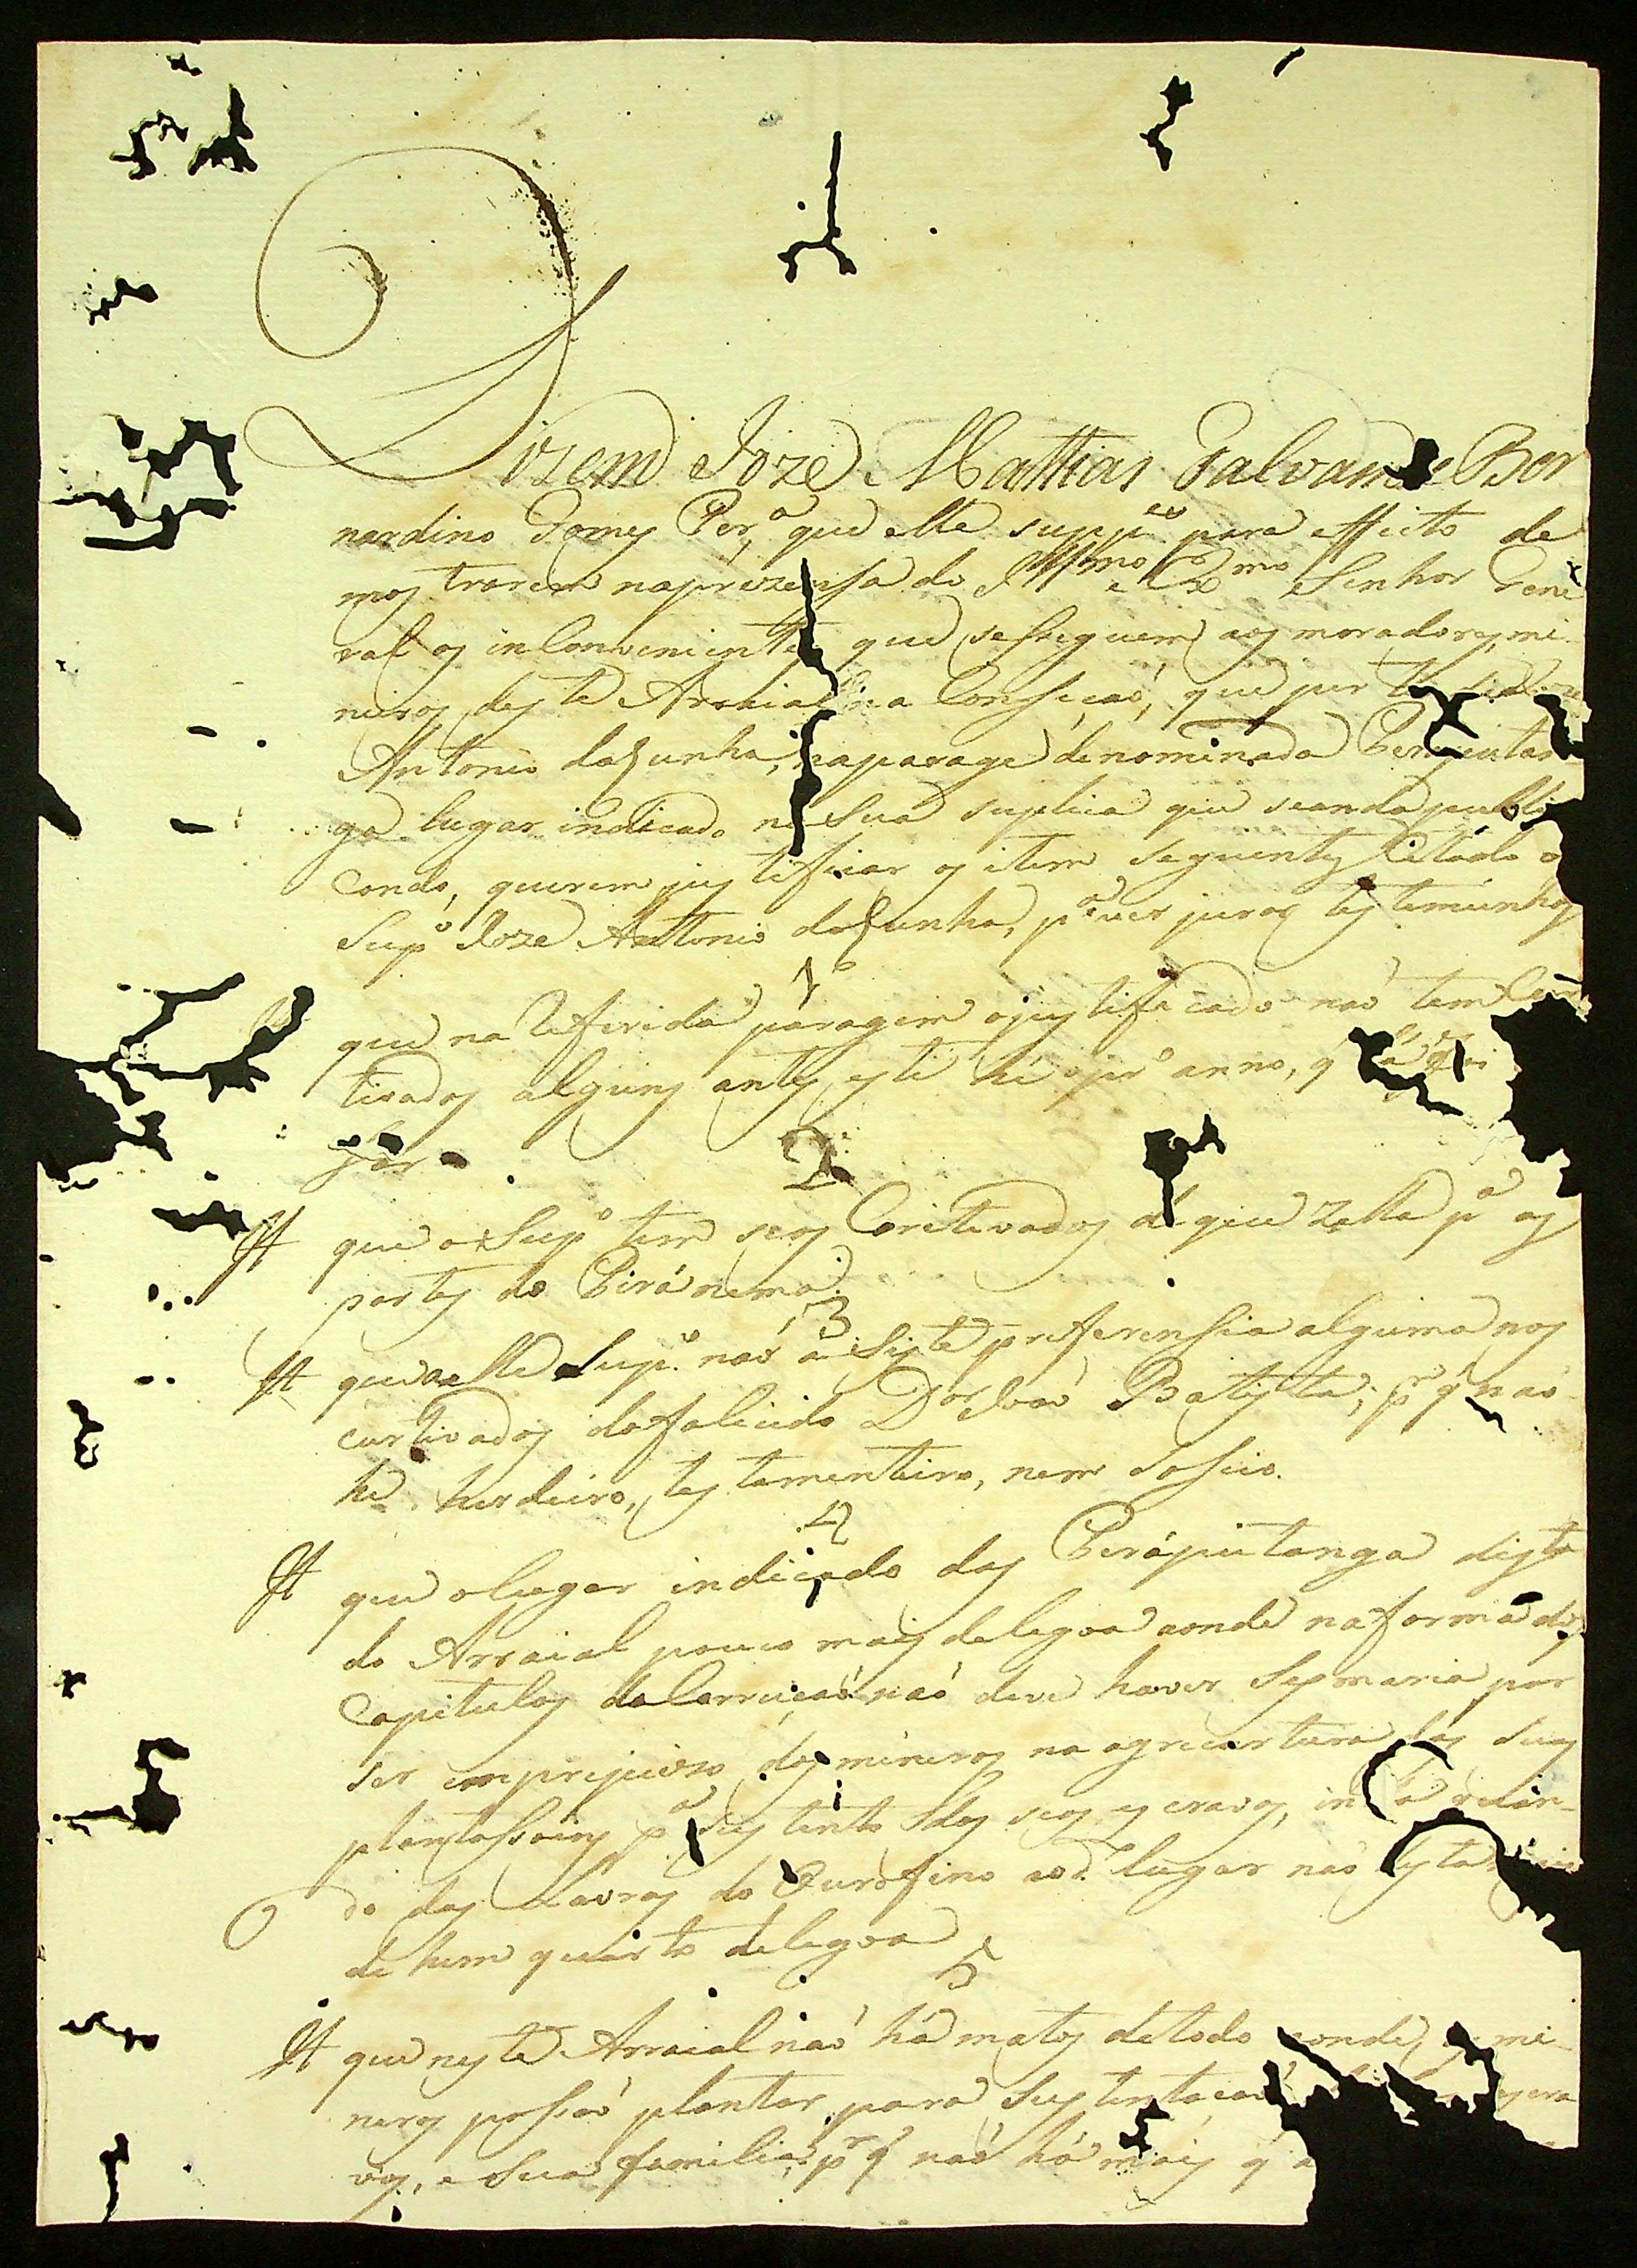 Dizem Joze Mattias Galvam e Ber
nardino Gomes Per.ª que elles supp.es para effeito de
mostrarem naprezensa do Ill.mo e Ex.mo Senhor Gene
ral os inconvenientes que sesseguem aos moradores, mi
neiros deste Arraial na Consição, que per
Antonio daCunha, naparage denominada
ga lugar indicado na Sua suplica que seanda publi
cando, querem justeficar os item seguentes Citado o
Sup.º Joze Antonio daCunha, p.ª ver jurar testemunhas
1º
que na referida paragem ojustificado naó tem Cor
tivados alguns antes este hé opr.º anno, q
2
It que o Sup.º tem seos Coritevados dé que zella p.ª as
partes do Piránema.
3
It que aelle Sup.º naó asiste preferensia alguma nos
curtivados dofalecido D.or Joaó Batista, p.r q̃ naó
hé herdeiro, testamenteiro, nem Sosio.
4
It que olugar indicado das Perápitanga dista
do Arraial pouco mais delegoa aonde naforma dos
Capitulos daCorreiçaó naó deve haver Sesmaria por
ser emprejuizo dos mineros na agricurtura das suas
plantassoins p.ª sustento dos seos escravos,
do das Lavras do Ourofino aod.º lugar naó
de hum quarto delegoa
5
It que neste Arraial naó há matos detodo aonde os mi
neros possaó plantar para sustentacaó escra
vos, e Sua familia, p.r q̃ naó há mais q̃ a